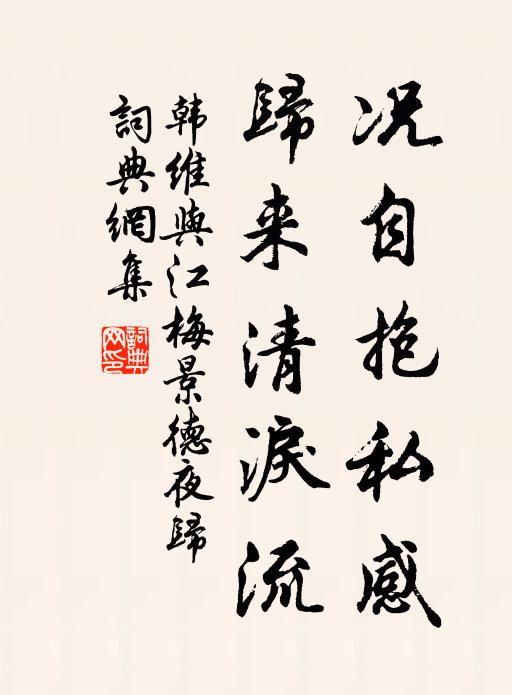 况自抱私感
歸来清淚流
韩維與江梅景德夜歸
詞典網集
詞典網印